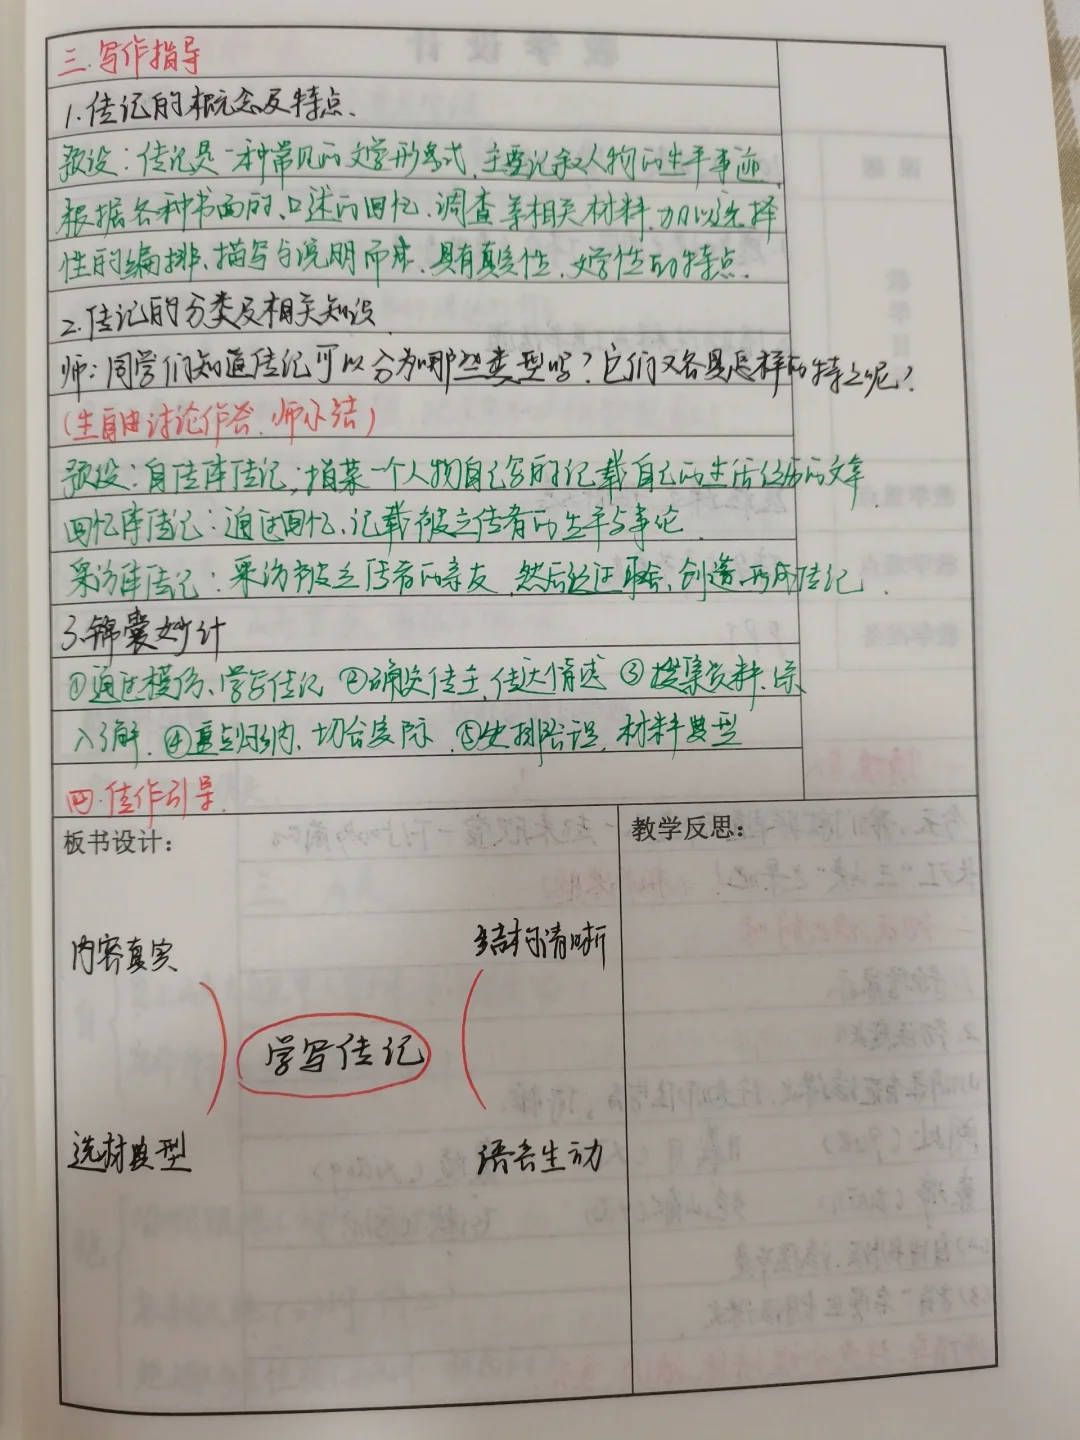 三.写作指导
1.传记的概念及特点.
预设:传记是一种常见的文学形式,主要记叙人物的生平事迹,
根据各种书面的、口述的回忆、调查等相关材料,加以选择
性的编排、描写与说明而成.具有真实性、文学性的特点.
2.传记的分类及相关知识
师:同学们知道传记可以分为哪些类型吗?它们又各具怎样的特点呢?
(生自由讨论作答.师小结)
预设:自传体传记:指某一个人物自己写的记载自己的生活经历的文章.
回忆体传记:通过回忆、记载被立传者的生平与事
采访体传记:采访被立传者的亲友,然后经过 创造形成传记.
3.锦囊妙计
①通过模仿、学写传记 ②确定传主,传达情感 ③搜集资料.深
入了解.④重点归纳、切合实际.⑤ 材料典型
四.佳作引导.
板书设计:
教学反思:
内容真实
结构清晰
学写传记
选材典型
语言生动